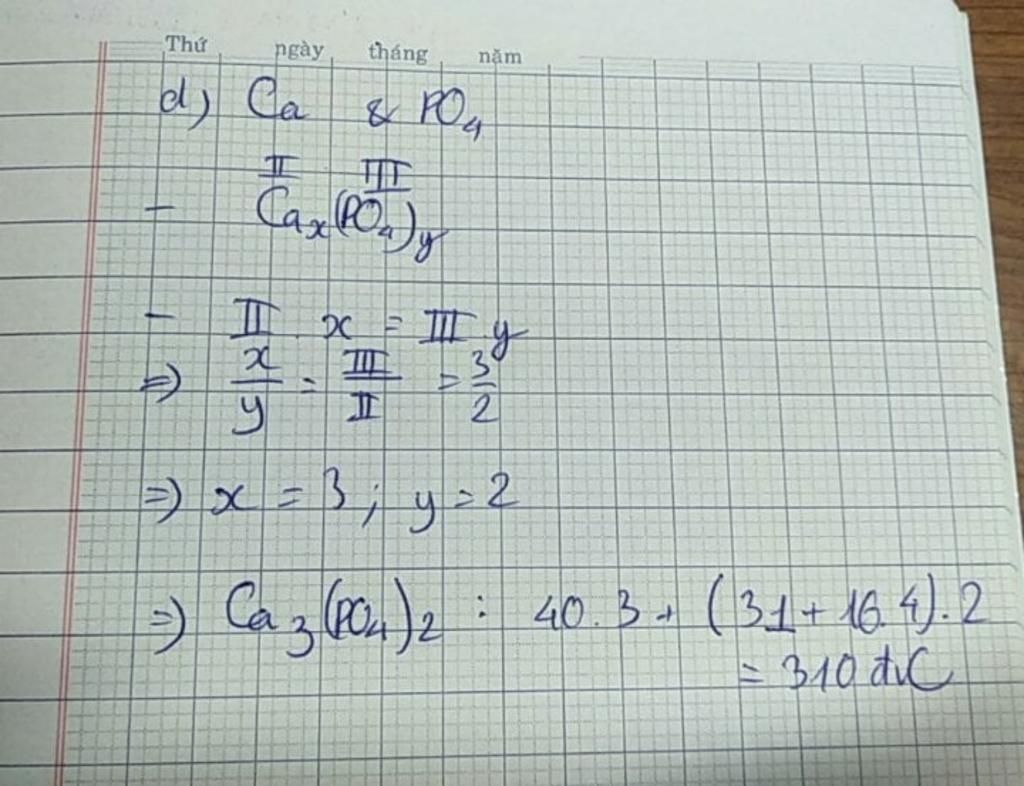 Thứ ngày tháng năm
d) Ca & PO4
II III
- Cax(PO4)y
- II . x = III . y
=> x/y = III/II = 3/2
=> x = 3; y = 2
=> Ca3(PO4)2 : 40.3 + (31+16.4).2
= 310 đvC